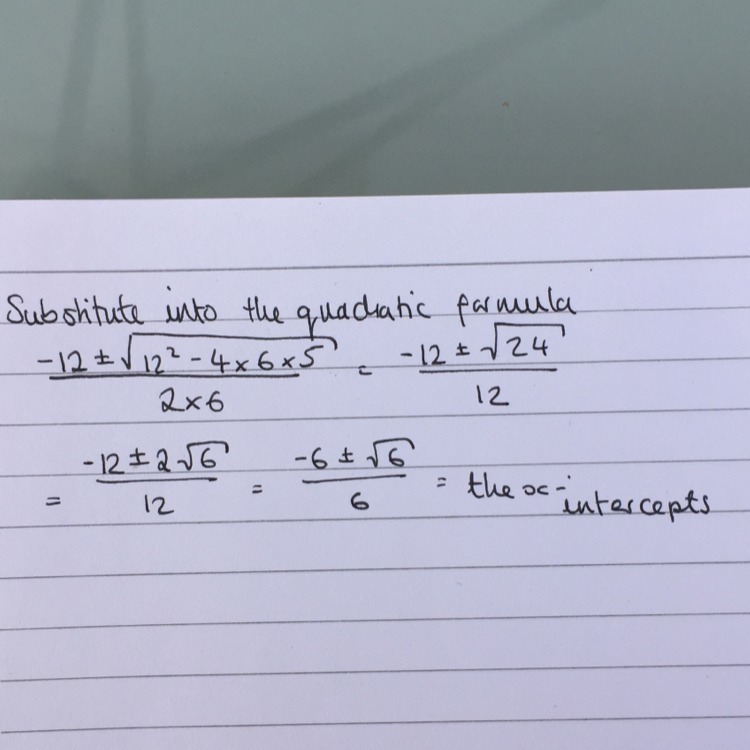 Substitute into the quadratic formula
-12 ± √12² - 4×6×5 / 2×6 = -12 ± √24 / 12
= -12 ± 2√6 / 12 = -6 ± √6 / 6 = the x-intercepts